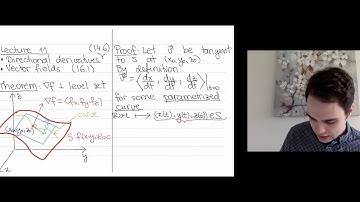 Lecture 11 (14.6)
• Directional derivatives
• Vector fields (16.1)
Theorem: ∇f ⊥ level set
z
∇f = ⟨fx, fy, fz⟩
curve
(x₀,y₀,z₀)
S: f(x,y,z)=c
y
x
Proof: Let v⃗ be tangent
to S at (x₀,y₀,z₀).
By definition:
v⃗ = ⟨dx/dt, dy/dt, dz/dt⟩|t=0
for some parametrized
curve
t ↦ (x(t), y(t), z(t)) ∈ S